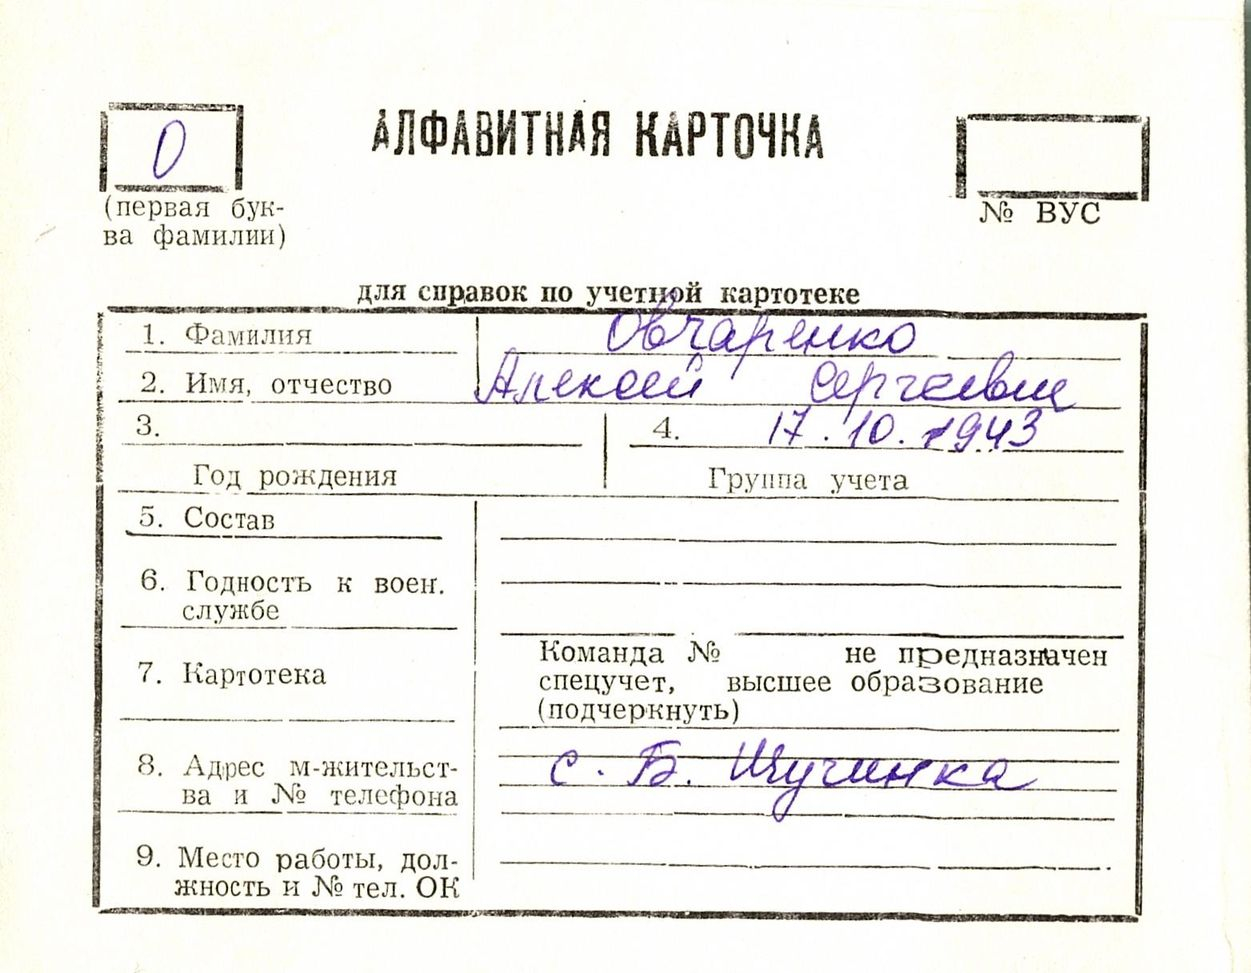 О
АЛФАВИТНАЯ КАРТОЧКА
(первая бук-
ва фамилии)
№ ВУС
для справок по учетной картотеке
1. Фамилия Овчаренко
2. Имя, отчество Алексей Сергеевич
3. 4. 17.10.1943
Год рождения Группа учета
5. Состав
6. Годность к воен.
службе
7. Картотека
Команда № не предназначен
спецучет, высшее образование
(подчеркнуть)
8. Адрес м-жительст-
ва и № телефона
с. Б. Щучинка
9. Место работы, дол-
жность и № тел. ОК